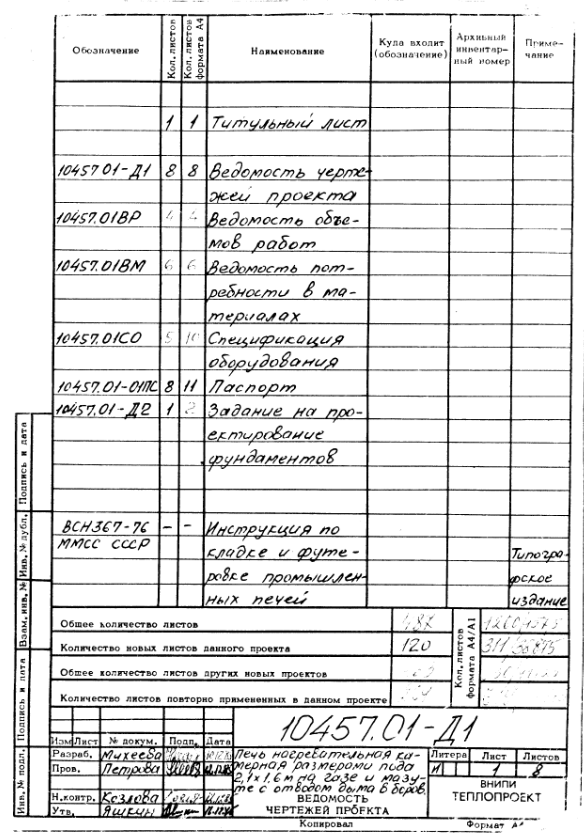 Обозначение Кол. листов Кол. листов формата А4 Наименование Куда входит (обозначение) Архивный инвентарный номер Примечание
1 1 Титульный лист
10457.01-Д1 8 8 Ведомость черте-
жей проекта
10457.01ВР 4 4 Ведомость объе-
мов работ
10457.01ВМ 6 6 Ведомость пот-
ребности в ма-
териалах
10457.01СО 5 10 Спецификация
оборудования
10457.01-01ПС 8 11 Паспорт
10457.01-Д2 1 2 Задание на про-
ектирование
фундаментов
ВСН367-76 - - Инструкция по
ММСС СССР кладке и футе- Типогра-
ровке промышлен- фское
ных печей издание
Общее количество листов
Количество новых листов данного проекта 120
Общее количество листов других новых проектов
Количество листов повторно примененных в данном проекте
Кол. листов формата А4/А1
10457.01-Д1
Изм Лист № докум. Подп. Дата
Разраб. Михеева
Пров. Петрова
Н.контр. Козлова
Утв. Яшкин
Печь нагревательная ка-
мерная размерами пода
2,1х1,6м на газе и мазу-
те с отводом дыма в боров.
ВЕДОМОСТЬ
ЧЕРТЕЖЕЙ ПРОЕКТА
Литера Лист Листов
И 1 8
ВНИПИ
ТЕПЛОПРОЕКТ
Копировал Формат А4
Инв. № подл. Подпись и дата Взам. инв. № Инв. № дубл. Подпись и дата